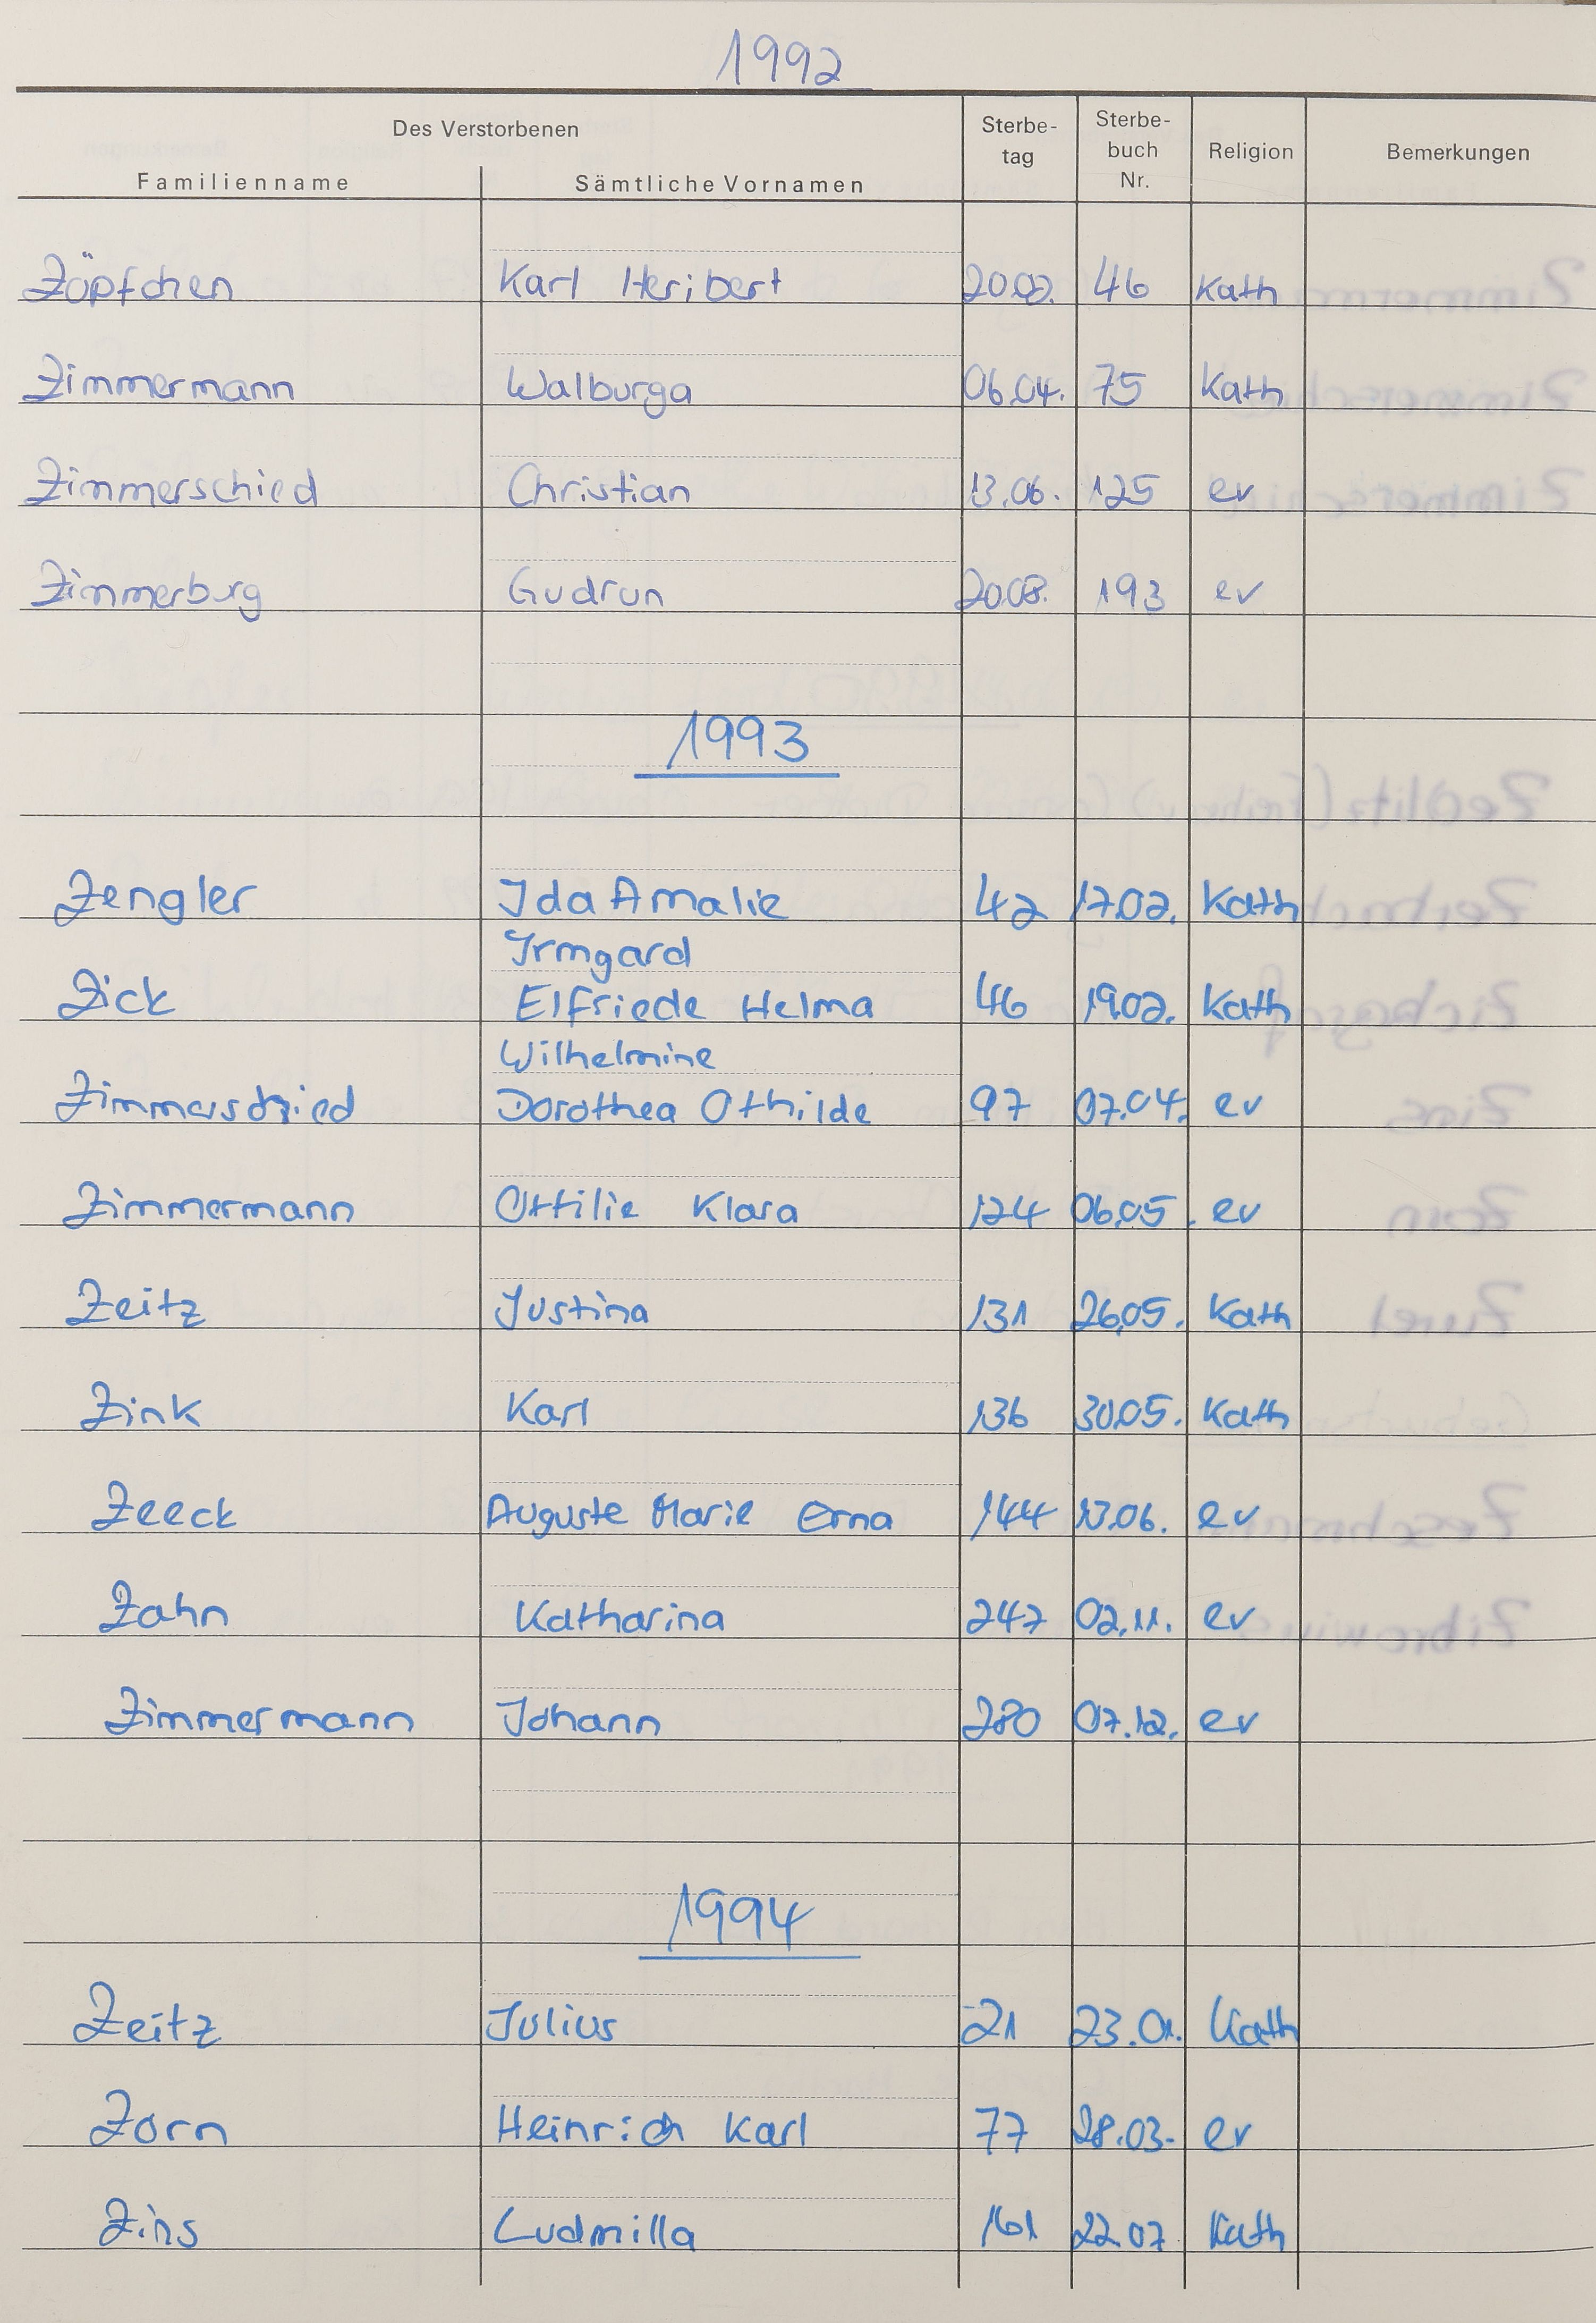 1992
Des Verstorbenen Sterbe- Sterbe-
tag buch Religion Bemerkungen
Familienname Sämtliche Vornamen Nr.
Zöpfchen Karl Heribert 20.02. 46 Kath
Zimmermann Walburga 06.04. 75 Kath
Zimmerschied Christian 13.06. 125 ev
Zimmerburg Gudrun 20.08. 193 ev
1993
Zengler Ida Amalie 42 17.02. Kath
Irmgard
Zick Elfriede Helma 46 19.02. Kath
Wilhelmine
Zimmerschied Dorothea Othilde 97 07.04. ev
Zimmermann Ottilie Klara 124 06.05. ev
Zeitz Justina 131 26.05. Kath
Zink Karl 136 30.05. Kath
Zeeck Auguste Marie Erna 144 13.06. ev
Zahn Katharina 247 02.11. ev
Zimmermann Johann 280 07.12. ev
1994
Zeitz Julius 21 23.01. Kath
Zorn Heinrich Karl 77 28.03. ev
Zins Ludmilla 161 22.07 Kath